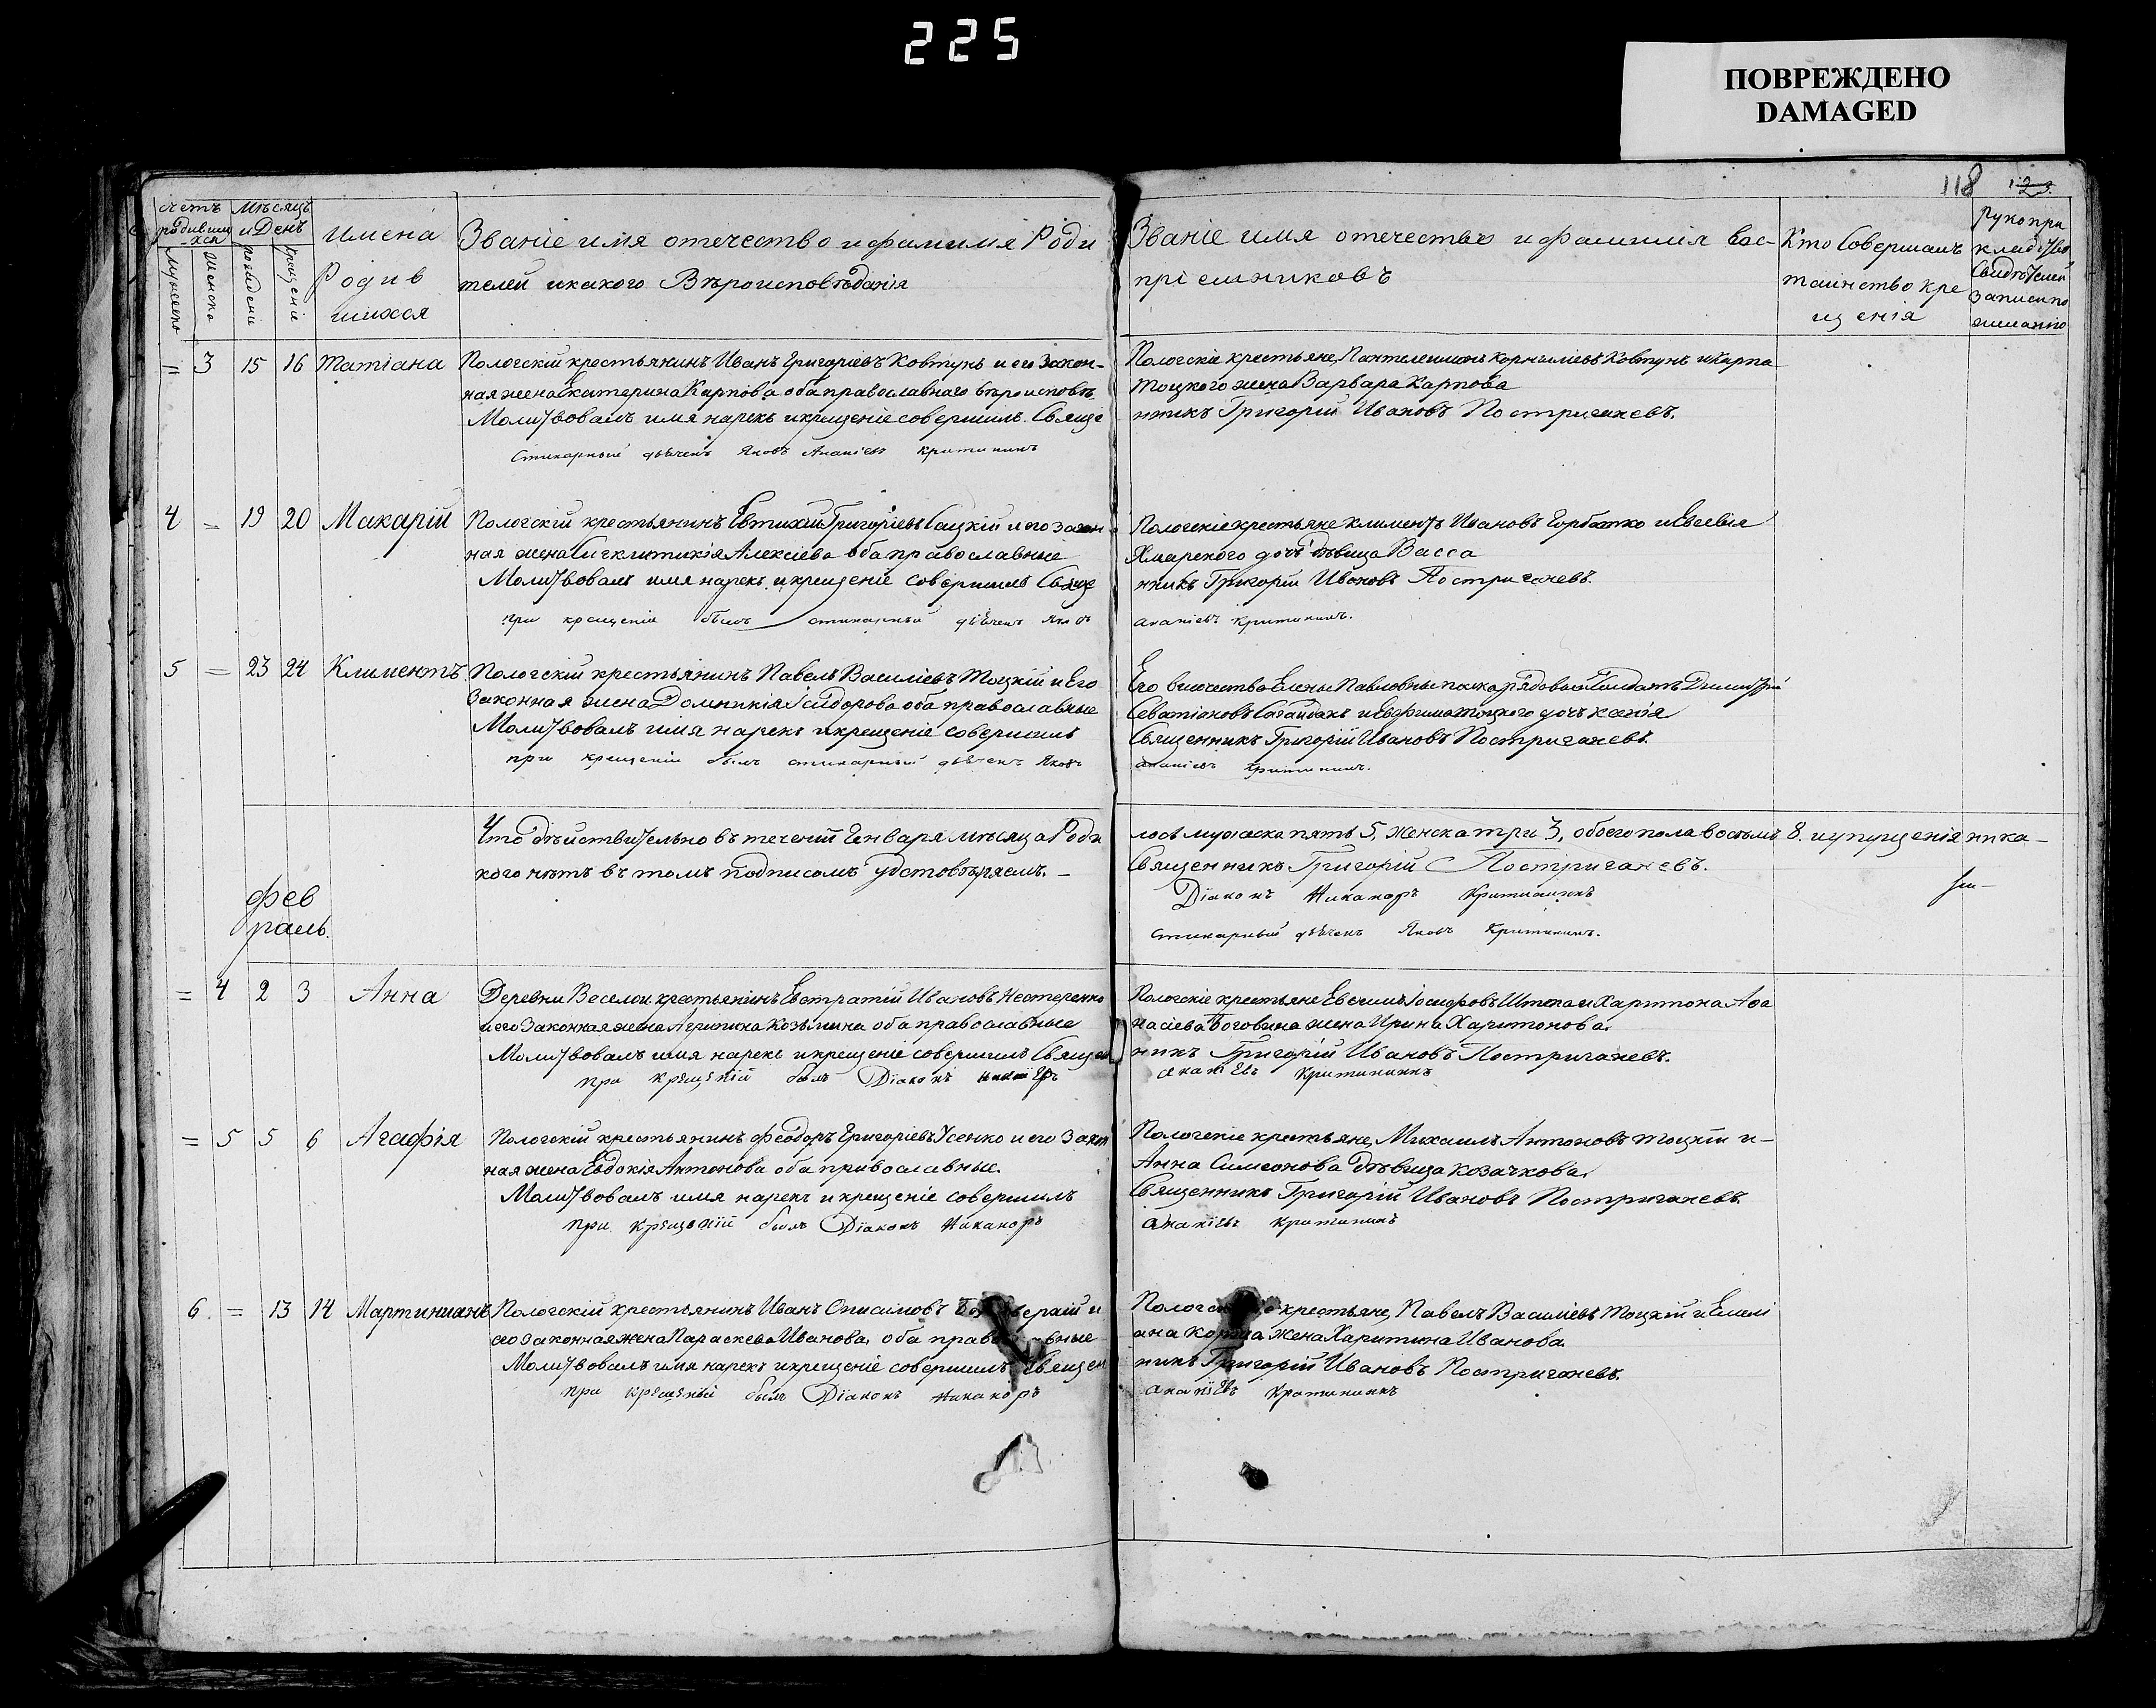 225
ПОВРЕЖДЕНО
DAMAGED
118 123
счетъ родивших-ся
Мужеска
Женска
Мѣсяцъ и День
рожденія
крещенія
имена Родившихся
Званіе имя отечество и фамилія Роди
телей и какого Вѣроисповѣданія
Званіе имя отечество и фамилія вос-
пріемниковъ
Кто Совершалъ
таинство кре
щенія
Рукопри
клад
Свидѣтелей
записи по
желанію
= 3 15 16 Татіана
Пологскій крестьянинъ Иванъ Григоріевъ Ковтунъ и его Закон-
ная жена Екатерина Карпова оба православнаго вѣроисповѣ
Молитвовалъ имя нарекъ и крещеніе совершилъ Свяще
Стихарный дьячекъ Яковъ Ананіевъ Критининъ
Пологскіе крестьяне, Пантелеимонъ Корниліевъ Ковтунъ и Карпа
Тоцкого жена Варвара Карпова
нникъ Григорій Ивановъ Постригачевъ.
4 = 19 20 Макарій
Пологскій крестьянинъ Евтихій Григоріевъ Сацкій и его закон
ная жена Алексіева оба православные
Молитвовалъ имя нарекъ и крещеніе совершилъ Свяще
при крещеніи былъ стихарный дьячекъ Яковъ
Пологскіе крестьяне Климентъ Ивановъ Горбатко и Евсевія
Хмарского дочь дѣвица Васса
нникъ Григорій Ивановъ Постригачевъ.
ананіевъ критининъ.
5 = 23 24 Климентъ
Пологскій крестьянинъ Павелъ Василіевъ Тоцкій и Его
Законная жена Домникія Ісидорова оба православные
Молитвовалъ имя нарекъ и крещеніе совершилъ
при крещеніи былъ стихарный дьячекъ Яковъ
Его височества Елены Павловны полка рядовой Солдатъ Димитрій
Севатіановъ Сагайдакъ и Евфима Тоцкого дочь Ксенія
Священникъ Григорій Ивановъ Постригачевъ.
ананіевъ критининъ.
Что дѣйствительно въ теченіи Генваря мѣсяца Роди
лось мужеска пять 5, женска три 3, обоего пола восемь 8. и упущенія ника-
кого нѣтъ въ томъ подписомъ удостовѣряемъ.-
Священникъ Григорій Постригачевъ.
Діаконъ Никаноръ Критининъ
стихарный дьячекъ Яковъ Критининъ.
фев
раль.
= 4 2 3 Анна
Деревни Веселой крестьянинъ Евстратій Ивановъ Нестеренко
и его Законная жена Агрипина Козьмина оба православные
Молитвовалъ имя нарекъ и крещеніе совершилъ Священ
при крещеніи былъ Діаконъ
Пологскіе крестьяне Евфимъ Іосифовъ Штепа и Харитона Афа
насіева Боговина жена Ирина Харитонова.
никъ Григорій Ивановъ Постригачевъ.
ананіевъ Критининъ
= 5 5 6 Агафія
Пологскій крестьянинъ Феодоръ Григоріевъ Усенко и его Закон
ная жена Евдокія Антонова оба православные.
Молитвовалъ имя нарекъ и крещеніе совершилъ
при крещеніи былъ Діаконъ Никаноръ
Пологскіе крестьяне, Михаилъ Антоновъ Тоцкій и-
Анна Симеонова дѣвица Козачкова.
Священникъ Григорій Ивановъ Постригачевъ.
Ананіевъ Критининъ
6. = 13 14 Мартиніанъ
Пологскій крестьянинъ Иванъ Онисимовъ и
его Законная жена Параскева Иванова, оба православные
Молитвовалъ имя нарекъ и крещеніе совершилъ Священ
при крещеніи былъ Діаконъ Никаноръ
крестьяне, Павелъ Василіевъ Тоцкій и Емели
ана жена Харитина Иванова.
никъ Григорій Ивановъ Постригачевъ.
ананіевъ Критининъ